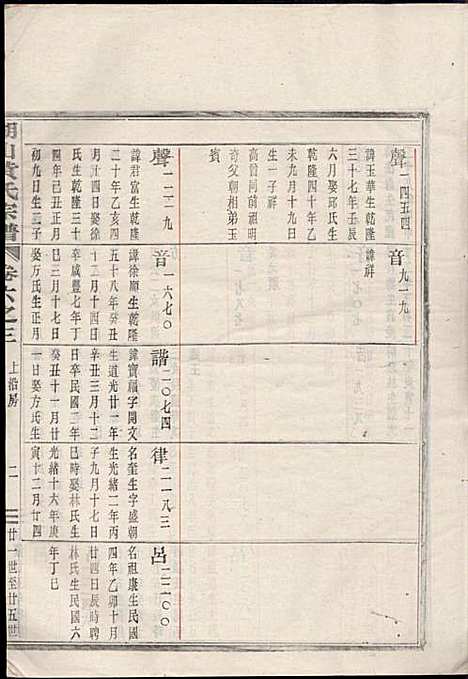 聲一四五四
諱玉華生乾隆
三十七年壬辰
六月娶邱氏生
乾隆四十年乙
未九月十九日
生一子祥
高曾河前祖明
奇父朝相弟玉
賓
音九一九
諱祥
聲一二二九
諱君富生乾隆
二十年乙亥四
月廿四日娶徐
氏生乾隆三十
四年己丑正月
初九日生三子
音一六七〇
諱徐順生乾隆
五十八年癸丑
十二月十四日
辛咸豐七年丁
巳三月十七日
娶方氏生正月
諧二〇七四
諱寶順字開文
生道光廿一年
辛丑三月十二
日卒民國三年
癸丑十一月廿
一日娶方氏生
律二二八三
名奎生字盛朝
生光緒二年丙
子九月十七日
巳時娶林氏生
光緒十六年庚
寅十二月廿四
呂二二〇〇
名祖康生民國
四年乙卯十月
廿四日辰時聘
林氏生民國六
年丁巳
湖山黃氏宗譜
卷六之三
上沿房
二
廿一世至廿五世